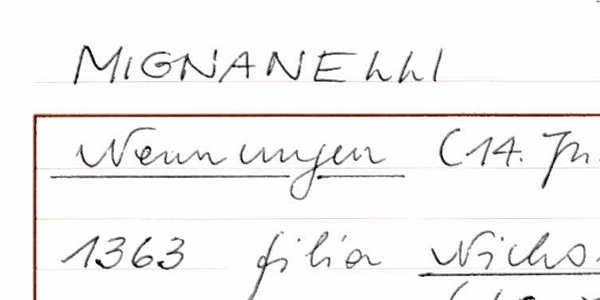 MIGNANELLI
Nennungen (14. Jh.
1363 filia Nicho